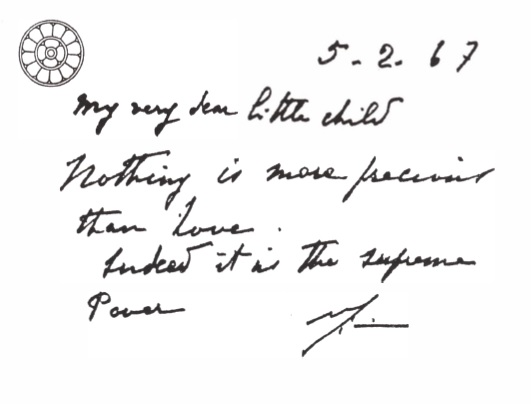 5-2.67
My very dear little child
Nothing is more precious
than Love.
Indeed it is the supreme
Power